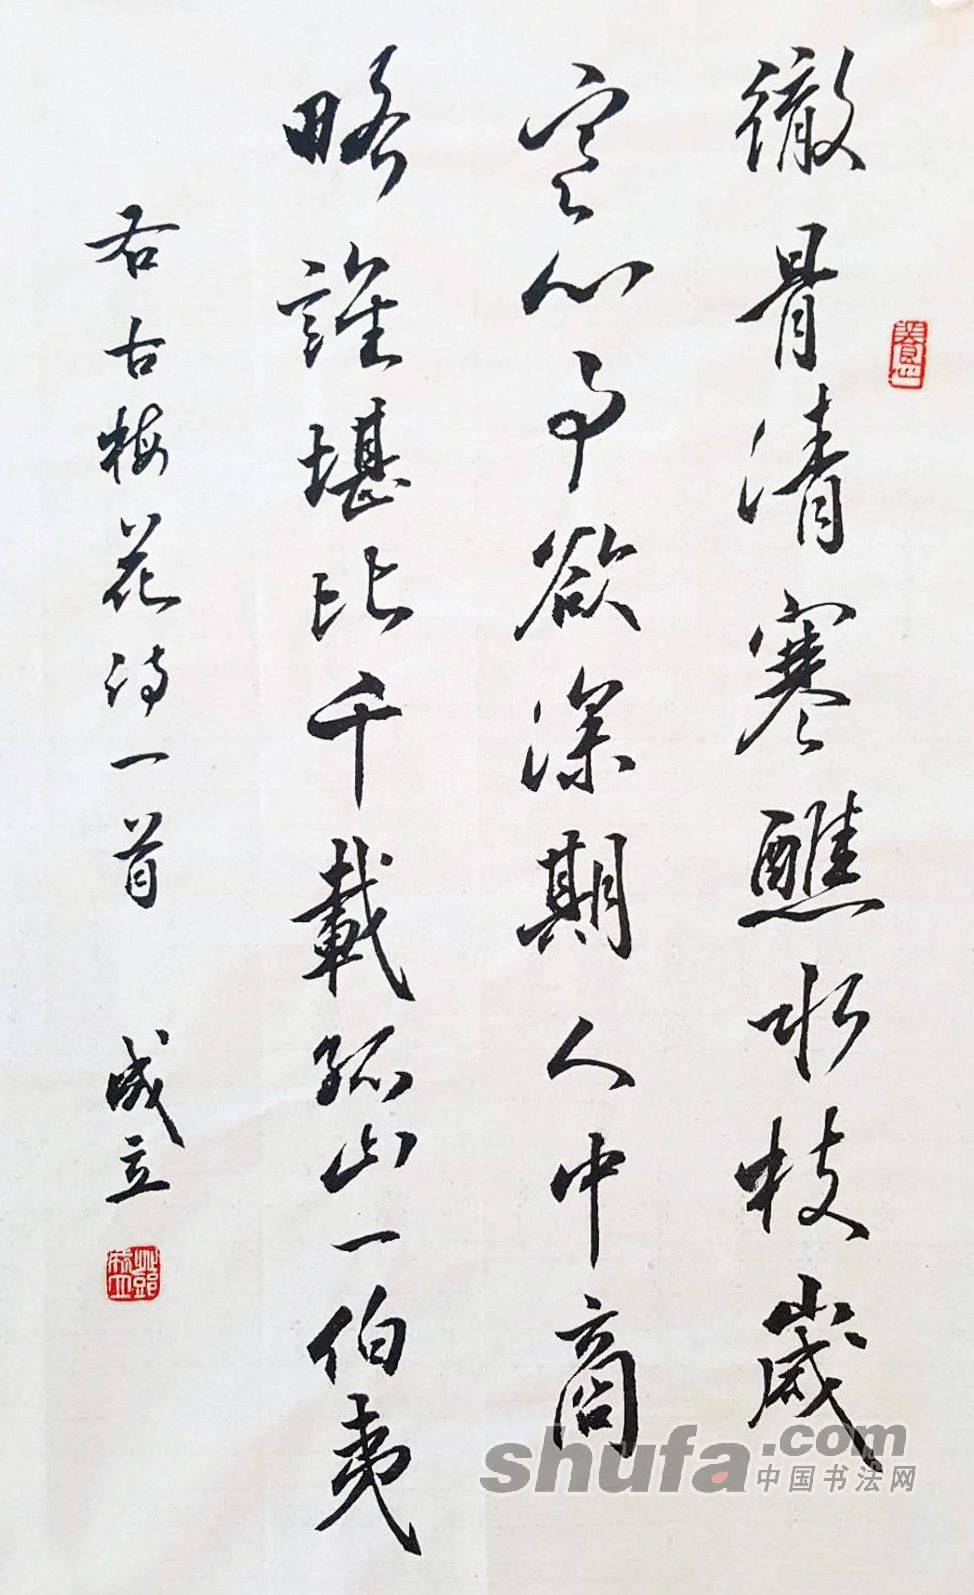 徹骨清寒醮水枝歲
寒心事欲深期人中商
略誰堪比千載孤山一伯夷
右古梅花詩一首 成立
養心
shufa.com
中国书法网